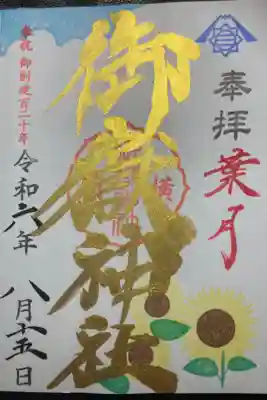 奉拝
葉月
御嶽神社
奉祝 御創建百二十年
令和六年
八月十五日